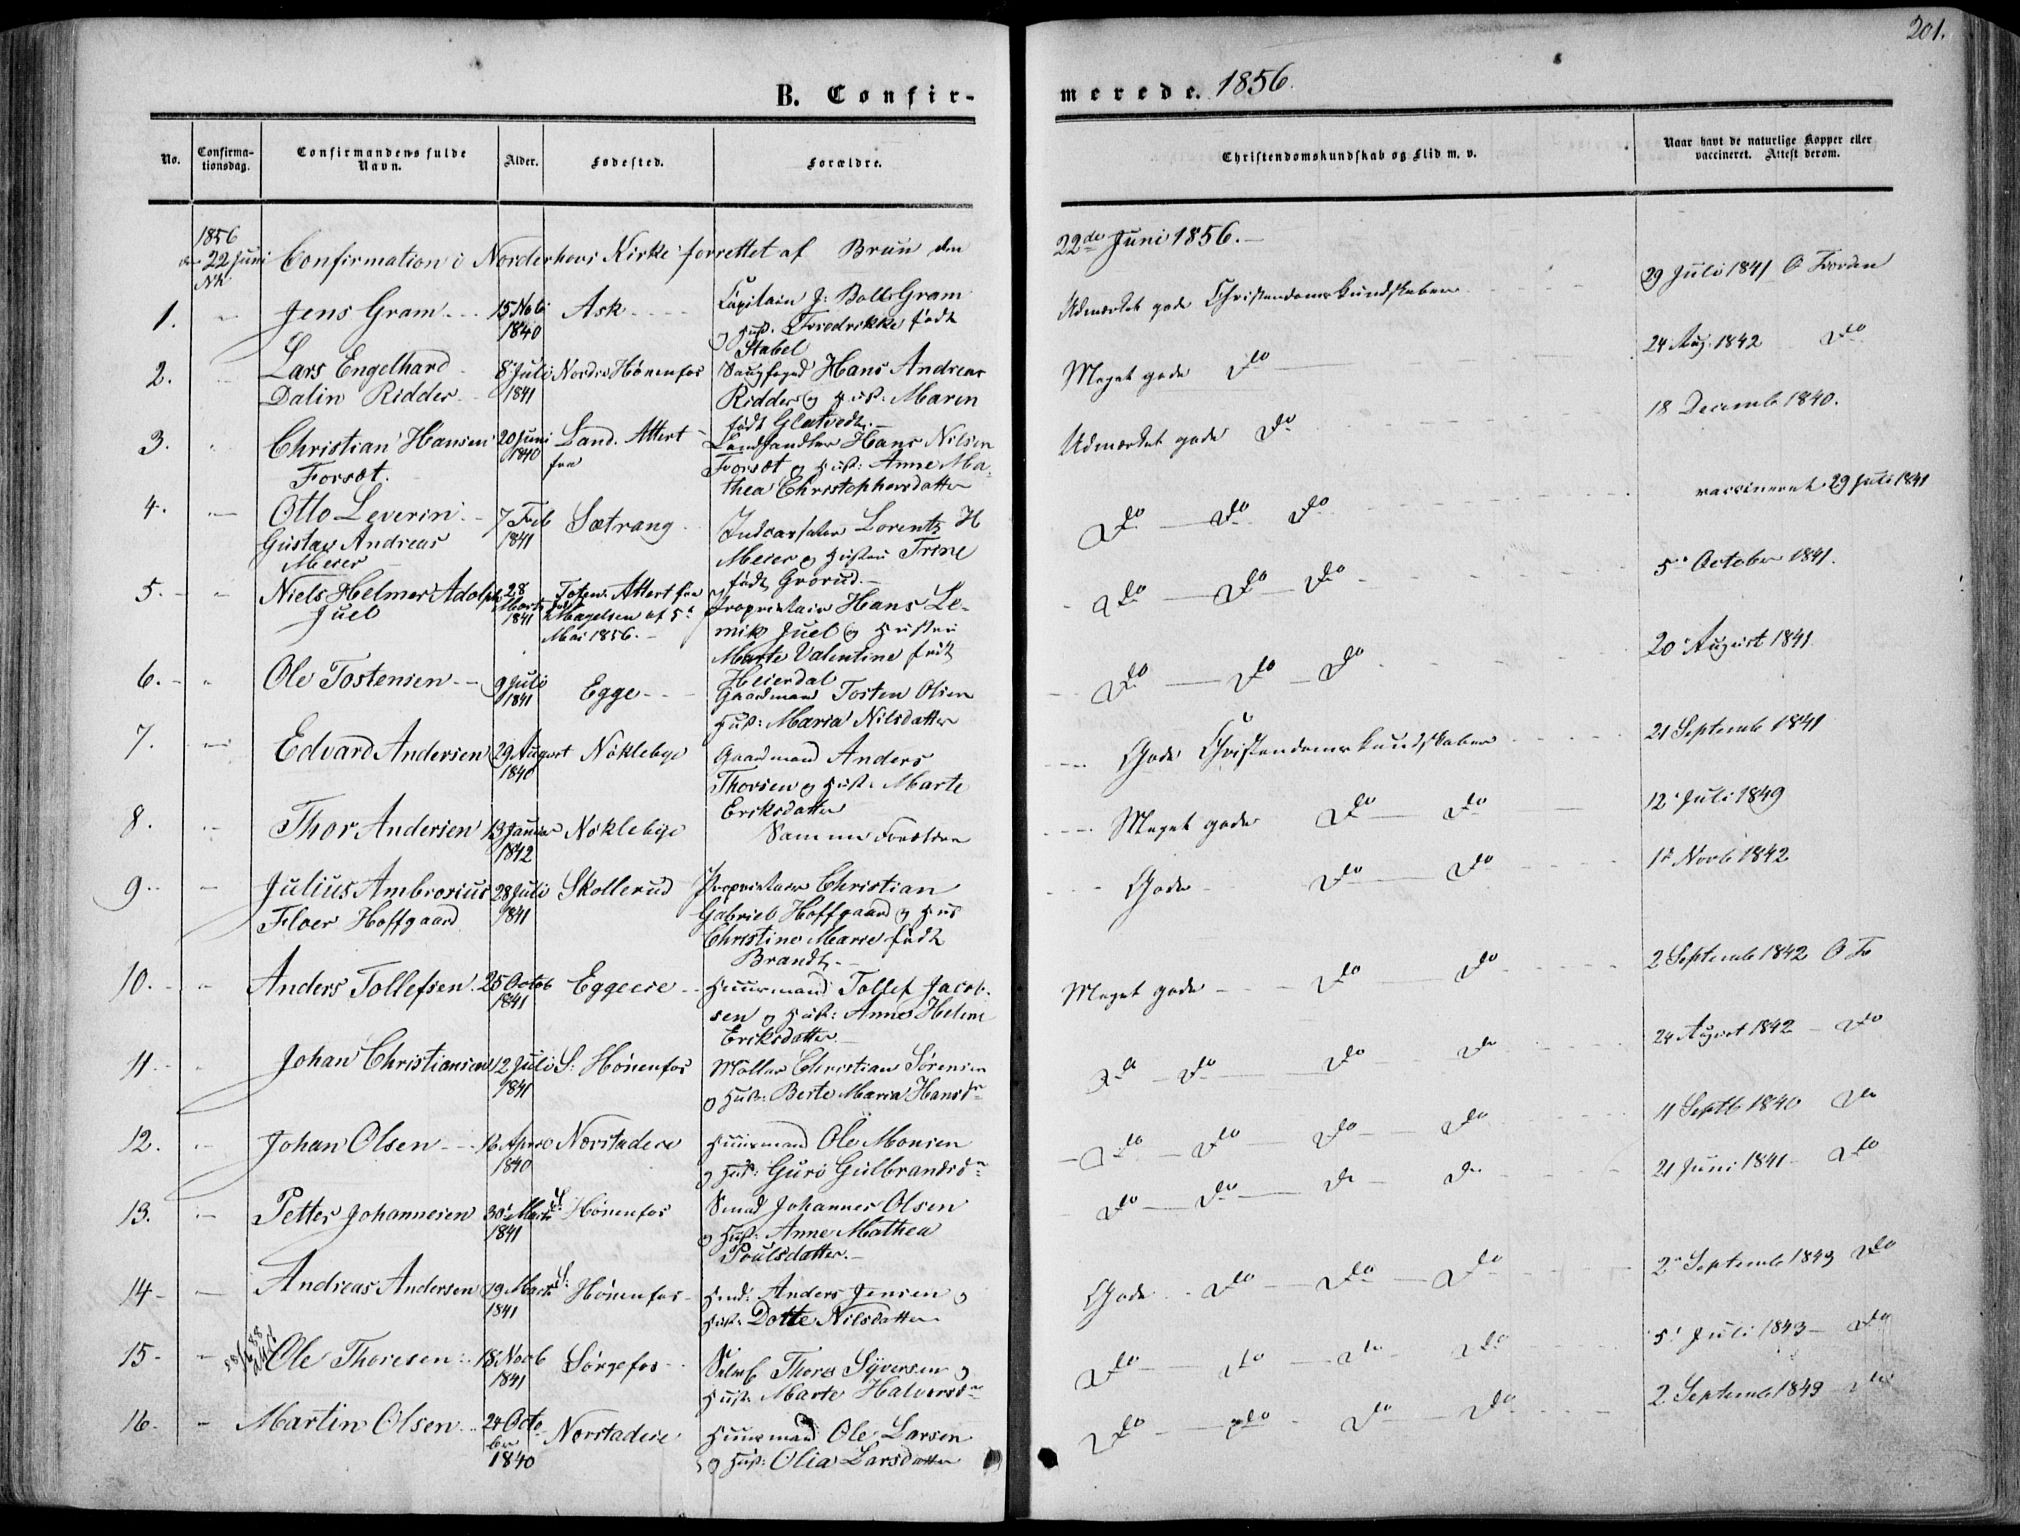 201.
B. Confir-
merede. 1856.
No.
Confirma-
tionsdag.
Confirmandens fulde
Navn.
Alder.
Fødested.
Forældre.
Christendomskundskab og Flid m. v.
Naar havt de naturlige Kopper eller
vaccineret. Attest derom.
1856
22 Juni Confirmation i Norderhovs Kirke forrettet af Bruun den 22de Juni 1856.
NK
1. Jens Gram 15 Nob Ask Capitain J: Bolle Gram Udmærket gode Christendomskundskaber 29 Juli 1841 O Forden
1840 og Hust. Fredrikke født
Stabel
2. Lars Engelhard 8 Juli Nordre Hønenfos Hans Andreas Meget gode Do 24 Aug. 1842 Do
Dalin Ridder 1841 Ridder og Hust. Maren
født Glatvedt.
3. Christian Hansen 20 Juni Land. Attest Landhandler Hans Nilsen Udmærket gode Do 18 Decemb 1840.
Forsøt. 1840 fra Forsøt og Hust: Anne Ma-
thea Christophersdatter
4. Otto Leverin 7 Feb Sætrang Lorentz H Do Do Do vaccineret 29 Juli 1841
Gustav Andreas 1841 Meier og Hustru Trine
Meier født Grorud.
5. Niels Helmer Adolph 28 Toten. Attest fra Proprietair Hans Le- Do Do Do 5. October 1841.
Juel Marts 1841 Magelsen af 5. mik Juel og Hustru
Mai 1856. Marte Valentine født
Heierdal
6. Ole Tostensen 9 Juli Egge Gaardmand Tosten Olsen Do Do Do 20. August 1841
1841 Hust: Maria Nilsdatter
7. Edvard Andersen 29 August Nøklebye Gaardmand Anders Gode Christendomskundskaber 21 Septemb 1841
1840 Thorsen og Hust. Marte
Eriksdatter
8. Thor Andersen 13 Januar Nøklebye Samme Forældre Meget gode Do Do 12. Juli 1849
1842
9. Julius Ambrosius 28 Juli Skollerud Proprietair Christian Gode Do Do 1. Novb 1842
Floer Hoffgaard 1841 Gabriel Hoffgaard og Hus
Christine Marie født
Brandt.
10. Anders Tollefsen 25 Octob Eggeeie Huusmand Tollef Jacob- Meget gode Do Do 2 Septemb 1842 O Fo
1841 sen og Hust: Anne Helene
Eriksdatter
11. Johan Christiansen 12 Juli S: Hønenfos Møller Christian Sørensen Do Do Do Do 24 August 1842 Do
1841 og Hust: Berte Maria Hansdr
12. Johan Olsen 16 April Norstadeie Huusmand Ole Monsen Do Do Do Do 11 Septb 1840 Do
1840 og Hust: Guro Gulbrandsdr
13. Petter Johannesen 30. Marts S: Hønenfos Smed Johannes Olsen Do Do Do Do 21 Juni 1841 Do
1841 og Hust: Anne Mathea
Poulsdatter.
14 Andreas Andersen 19 Marts S: Hønenfos Anders Jensen og Gode Do Do Do 2. Septemb 1843 Do
1841 Hust. Dorte Nilsdatter
15 Ole Thoresen 18 Novb Sørgefos Selve Thore Syversen og Do Do Do Do 5. Juli 1843 Do
1841 Hust. Marte Halvorsdr
16. Martin Olsen 24 Octo- Norstadeie Huusmand Ole Larsen Do Do Do Do 2 Septemb 1849 Do
ber og Hust: Olia Larsdatter
1840